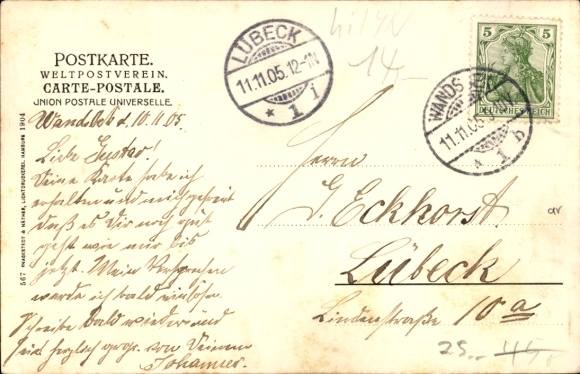 POSTKARTE.
WELTPOSTVEREIN.
CARTE-POSTALE.
UNION POSTALE UNIVERSELLE.
Wandsbek d. 10.11.05.
Liebe Gustav!
Deine Karte habe ich
erhalten und mich gefreut
daß es Dir noch gut
geht wie mir bis
jetzt. Mein Versprechen
werde ich bald einlösen.
Schreibe bald wieder und
sei herzlich gegr. von Deinem
Johannes.
567 KNACKSTEDT & NÄTHER, LICHTDRUCKEREI, HAMBURG 1904
LÜBECK
11.11.05. 12-1N
* 1 i
14,-
5 5
DEUTSCHES REICH
WANDSBEK
11.11.05
* 1 b
Herrn
G. Eckhorst.
Lübeck
Lindenstraße 10a
25.-